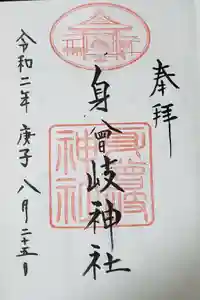 奉拝
身曾岐神社
令和二年 庚子 八月二十五日
身曾岐
神社